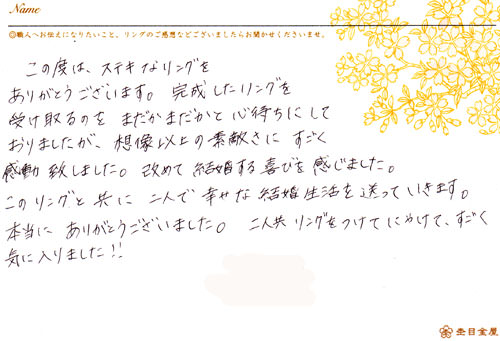 Name
◎職人へお伝えになりたいこと、リングのご感想などございましたらお聞かせくださいませ。
この度は、ステキなリングを
ありがとうございます。完成したリングを
受け取るのをまだかまだかと心待ちにして
おりましたが、想像以上の素敵さにすごく
感動致しました。改めて結婚する喜びを感じました。
このリングと共に二人で幸せな結婚生活を送っていきます。
本当にありがとうございました。二人共リングをつけてにやけて、すごく
気に入りました!!
杢目金屋